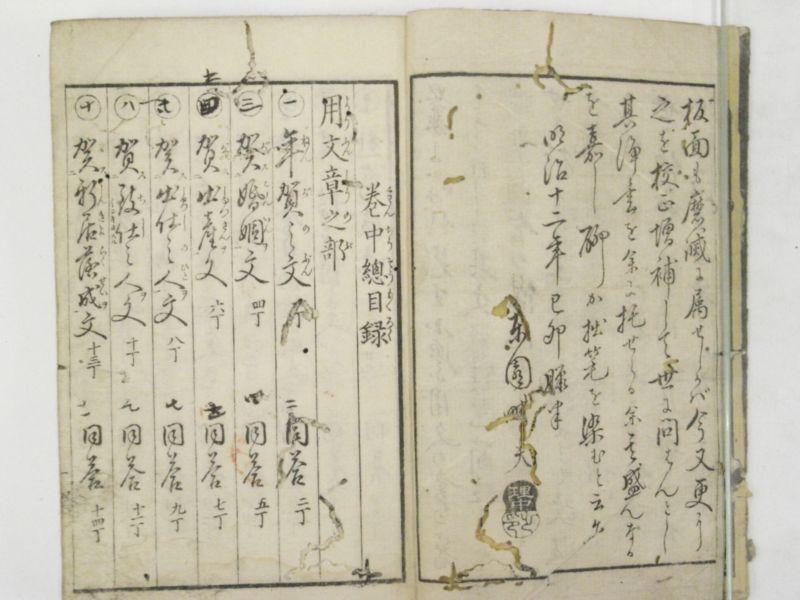 板面も磨滅に属せしかバ今又更に
之を校正増補して世に問はんとし
其浄書を余に托せらる余其盛んなる
を嘉し聊か拙筆を染むと云爾
明治十二年己卯
東園
巻中總目録
用文章之部
一 年賀之文
二 同答 二丁
三 賀婚姻文 四丁
四 同答 五丁
賀出産文 六丁
同答 七丁
賀出仕之人文 八丁
七 同答 九丁
八 賀致仕之人文 十丁
九 同答 十二丁
十 賀新居落成文 十三丁
十一 同答 十四丁